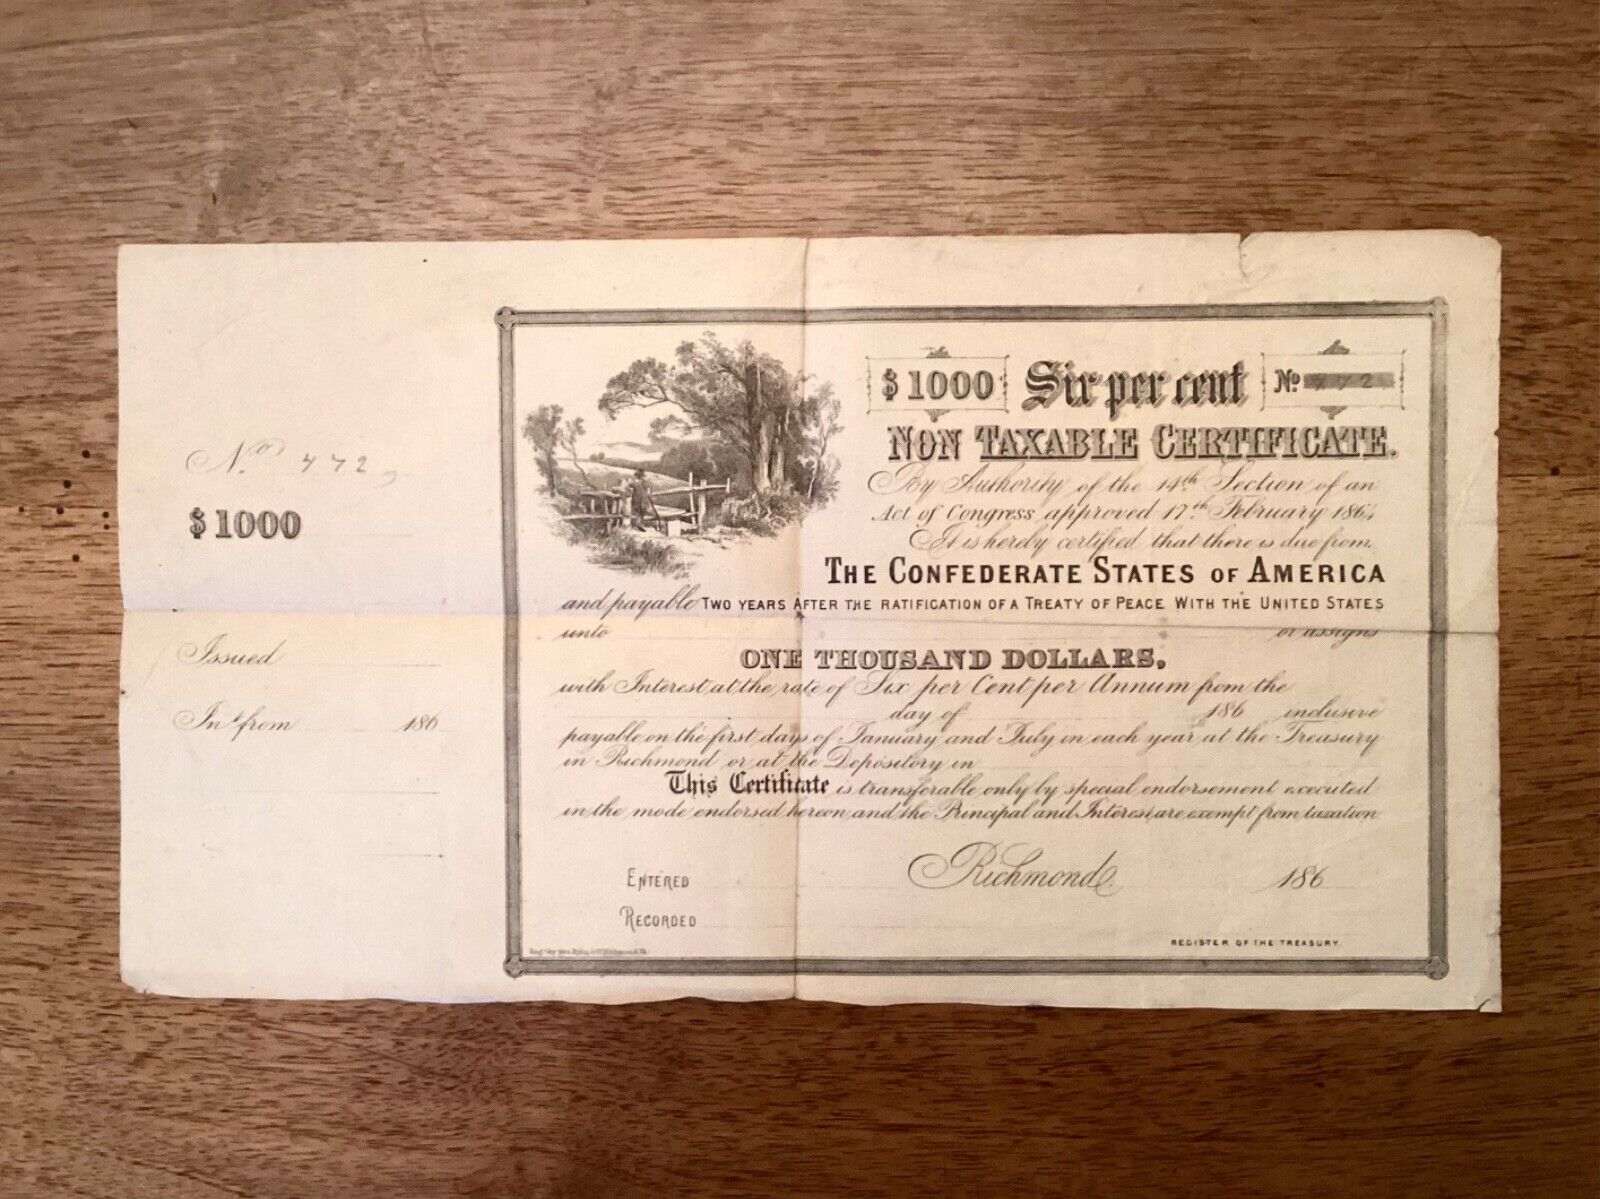 No 772
$1000
Issued
Int from 186
$1000 Six per cent No 772
NON TAXABLE CERTIFICATE.
By Authority of the 14th Section of an
Act of Congress approved 17th February 1864
It is hereby certified that there is due from
THE CONFEDERATE STATES OF AMERICA
and payable TWO YEARS AFTER THE RATIFICATION OF A TREATY OF PEACE WITH THE UNITED STATES
unto or assigns
ONE THOUSAND DOLLARS,
with Interest at the rate of Six per Cent per Annum from the
day of 186 inclusive
payable on the first days of January and July in each year at the Treasury
in Richmond or at the Depository in
This Certificate is transferable only by special endorsement executed
in the mode endorsed hereon and the Principal and Interest are exempt from taxation
Richmond 186
ENTERED
RECORDED
REGISTER OF THE TREASURY.